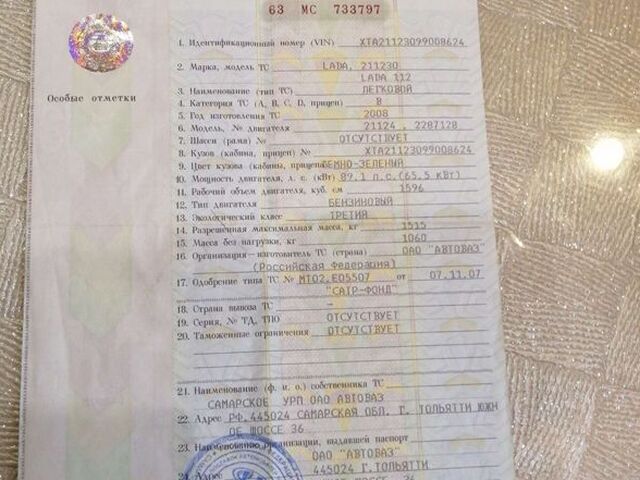 63 МС 733797
1. Идентификационный номер (VIN) XTA21123099008624
2. Марка, модель ТС LADA, 211230
LADA 112
Особые отметки
3. Наименование (тип ТС) ЛЕГКОВОЙ
4. Категория ТС (A, B, C, D, прицеп) B
5. Год изготовления ТС 2008
6. Модель, № двигателя 21124 , 2287128
7. Шасси (рама) № ОТСУТСТВУЕТ
8. Кузов (кабина, прицеп) № XTA21123099008624
9. Цвет кузова (кабины, прицепа) ТЕМНО-ЗЕЛЕНИЙ
10. Мощность двигателя, л. с. (кВт) 89.1 л.с.(65.5 кВт)
11. Рабочий объем двигателя, куб. см 1596
12. Тип двигателя БЕНЗИНОВЫЙ
13. Экологический класс ТРЕТИЙ
14. Разрешенная максимальная масса, кг 1515
15. Масса без нагрузки, кг 1060
16. Организация - изготовитель ТС (страна) ОАО "АВТОВАЗ"
(Российская Федерация)
17. Одобрение типа ТС № МТ02.Е05507 от 07.11.07
"САТР-ФОНД"
18. Страна вывоза ТС –
19. Серия, № ТД, ТПО ОТСУТСТВУЕТ
20. Таможенные ограничения ОТСУТСТВУЕТ
21. Наименование (ф. и. о.) собственника ТС
САМАРСКОЕ УРП ОАО АВТОВАЗ
22. Адрес РФ,445024 САМАРСКАЯ ОБЛ. Г. ТОЛЬЯТТИ ЮЖН
ОЕ ШОССЕ 36
23. Наименование организации, выдавшей паспорт
ОАО "АВТОВАЗ"
24. Адрес 445024 Г.ТОЛЬЯТТИ
ШОССЕ 36